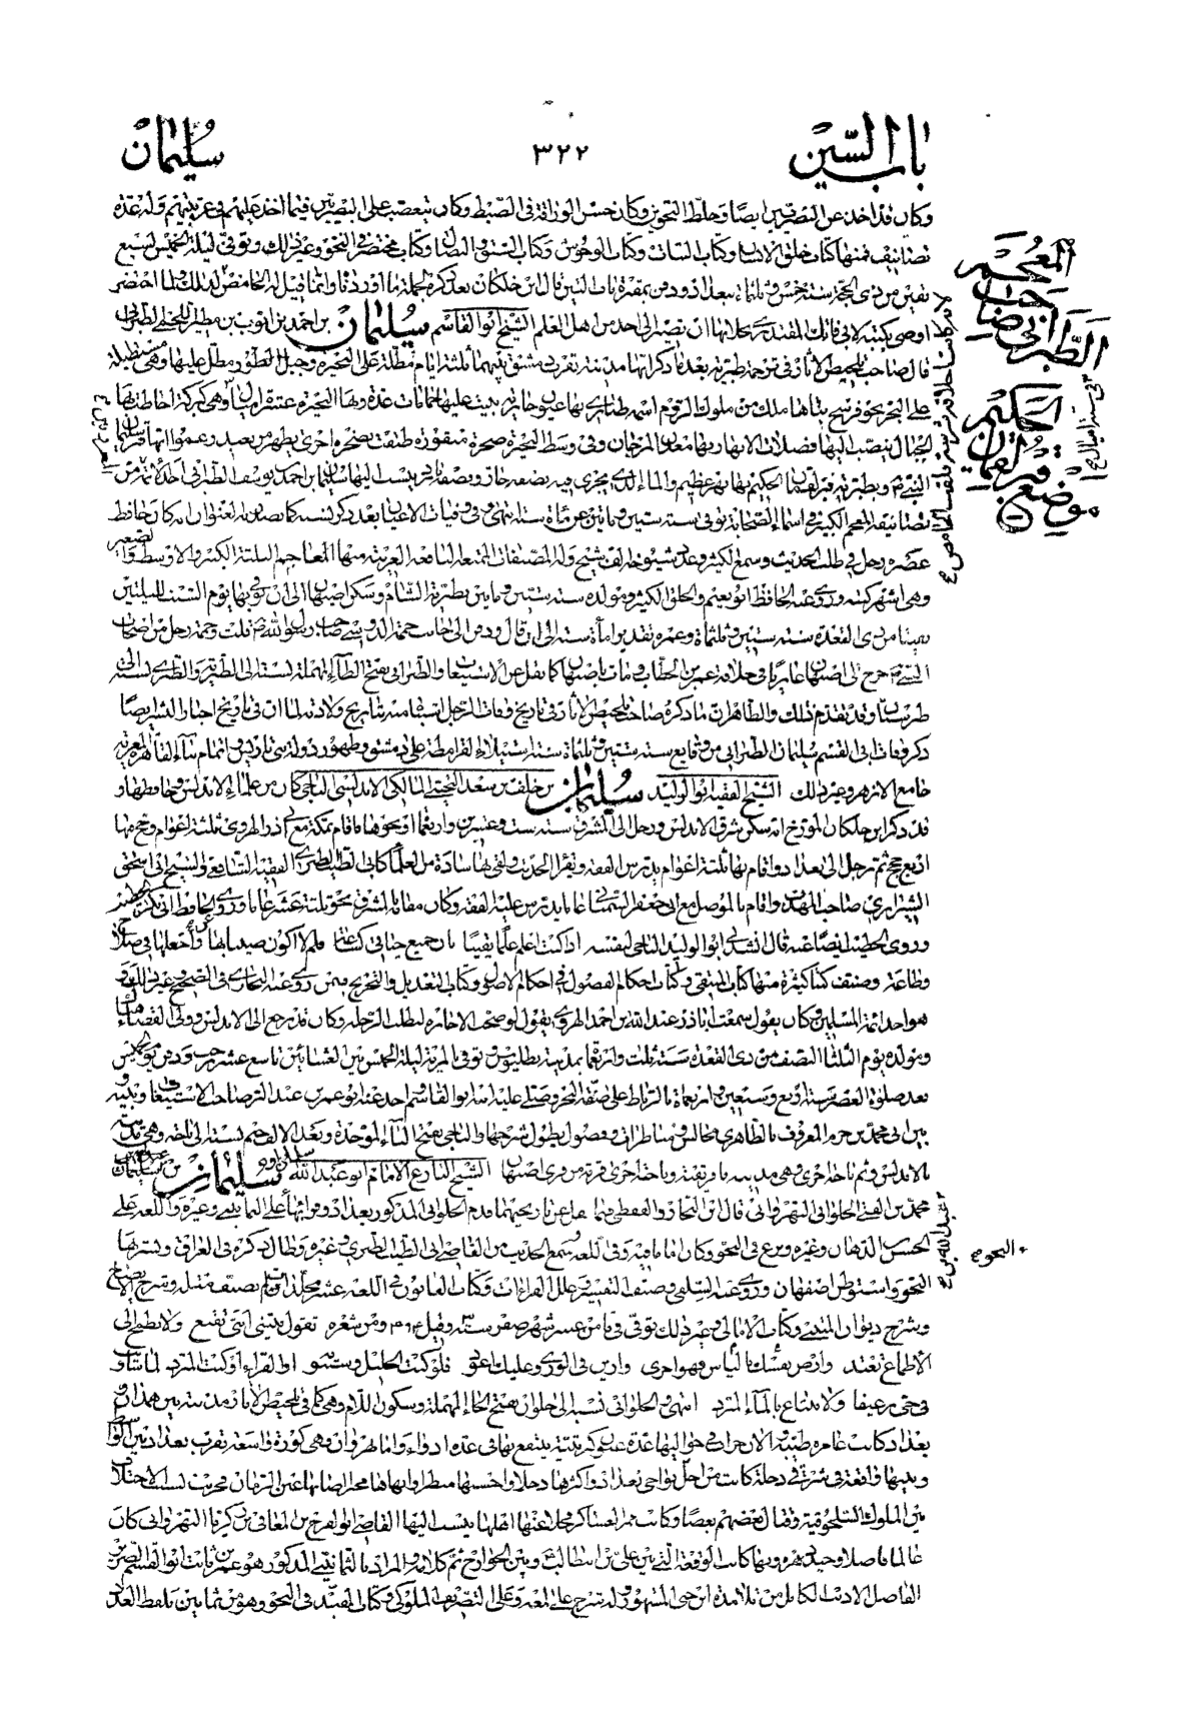 باب السّين
٣٢٢
سليمان
وكان قد اخذ عن البصريين ايضًا وخلط النحوين وكان حسن الوراقة فى الضبط وكان يتعصب على البصريين فيما اخذ عليهم فى عربيتهم وله عدة
تصانيف فمنها كتاب خلق الانسان وكتاب النبات وكتاب الوحوش وكتاب السبق والنضال وكتاب مختصر فى النحو وغير ذلك وتوفى ليلة الخميس لسبع
بقين من ذى الحجة سنة خمس وثلثمائة ببغداد ودفن بمقبرة باب التين قال ابن خلكان بعد ذكره لجملة ما اوردنا وانما قيل له الحامض لذلك ولما احتضر
اوصى بكتبه لابى فاتك المقتدرى بخلا بها ان تصير الى احد من اهل العلم الشيخ ابو القاسم سليمان بن احمد بن ايوب بن مطير اللخمى الطبرانى
قال صاحب تلخيص الآثار فى ترجمة طبرية بعد ما ذكر انها مدينة بقرب دمشق بينهما ثلثة ايام مطلة على البحيرة وجبل الطور مطل عليها وهى مستطيلة
على البحر نحو فرسخ بناها ملك من ملوك الروم اسمه طبارى بها عيون جارية بنيت عليها حمامات عدة وبها البحيرة عشرة اميال وهى كبركة احاطت بها
الجبال ينصب اليها فضلات الانهار بها معدن المرجان وفى وسط البحيرة صخرة منقورة طبقت بصخرة اخرى يظهر من بعيد وزعموا انها قبر سليمان
النبى ع وبطبرية قبر لقمان الحكيم بها نهر عظيم والماء الذى يجرى فيه نصفه حار ونصفه بارد ينسب اليها سليمان بن احمد بن يوسف الطبرانى احد الائمة من
تصانيفه المعجم الكبير فى اسماء الصحابة توفى سنة ستين ومأتين عن مأة سنة انتهى وفى وفيات الاعيان بعد ذكر نسبه كما صدر به العنوان انه كان حافظ
عصره رحل فى طلب الحديث وسمع الكثير وعدد شيوخه الف شيخ وله المصنفات الممتعة النافعة الغريبة منها المعاجم الثلثة الكبير والاوسط والصغير
وهى اشهر كتبه وروى عنه الحافظ ابو نعيم والخلق الكثير ومولده سنة ستين ومأتين بطبرية الشام وسكن اصبهان الى ان توفى بها يوم السبت لليلتين
بقيتا من ذى القعدة سنة ستين وثلثمأة وعمره تقديرا مأة سنة الى ان قال ودفن الى جانب حممة الدوسى صاحب رسول الله ص قلت وحممة رجل من اصحاب
النبى ص خرج الى اصبهان غازيا فى خلافة عمر بن الخطاب ومات باصبهان كما نقل عن الاستيعاب والطبرانى بفتح الطاء المهملة نسبة الى الطبرية والطبرى نسبة الى
طبرستان وقد تقدم ذلك والظاهر ان ما ذكره صاحب تلخيص الآثار فى تاريخ وفات الرجل اشتباه منه بتاريخ ولادته لما ان فى تاريخ اخبار البشر ايضًا
ذكر وفات ابى القسم سليمان الطبرانى من وقايع سنة ستين وثلثمأة سنة استيلاء القرامطة على دمشق وظهور دولة بنى باديس واتمام بناء القاهرة المعزية
جامع الازهر وغير ذلك الشيخ الفقيه ابو الوليد سليمان بن خلف بن سعد التجيبى المالكى الاندلسى الباجى كان من علماء الاندلس وحفاظها و
قد ذكر ابن خلكان المورخ انه سكن شرق الاندلس ورحل الى المشرق سنة ست وعشرين واربعمأة او نحوها فاقام بمكة مع ابى ذر الهروى ثلثة اعوام وحج فيها
اربع حجج ثم رحل الى بغداد واقام بها ثلثة اعوام يدرس الفقه ويقرأ الحديث ولقى بها سادة من العلماء كابى الطيب الطبرى الفقيه الشافعى والشيخ ابى اسحق
الشيرازى صاحب المهذب واقام بالموصل مع ابى جعفر السمنانى عاما يدرس عليه الفقه وكان مقامه بالمشرق نحو ثلثة عشر عاما وروى عن الحافظ ابى بكر الخطيب
وروى الخطيب ايضًا عنه قال انشدنى ابو الوليد الباجى لنفسه اذا كنت اعلم علما يقينا بان جميع حياتى كساعة فلم لا اكون ضنينا بها واجعلها فى صلاح
وطاعة وصنف كتبا كثيرة منها كتاب المنتقى وكتاب احكام الفصول فى احكام الاصول وكتاب التعديل والتجريح فيمن روى عنه البخارى فى الصحيح وغير ذلك و
هو احد ائمة المسلمين وكان يقول سمعت ابا ذر عبد الله بن احمد الهروى يقول لو صحت الاجازة لبطلت الرحلة وكان قد رجع الى الاندلس وولى القضاء هناك
ومولده يوم الثلثا النصف من ذى القعدة سنة ثلث واربعمأة بمدينة بطليوس وتوفى بالمرية ليلة الخميس بين العشائين تاسع عشر رجب ودفن يوم الخميس
بعد صلوة العصر سنة اربع وسبعين واربعمأة بالرباط على ضفة البحر وصلى عليه ابنه ابو القاسم اخذ عنه ابو عمر بن عبد البر صاحب الاستيعاب وبينه و
بين ابى محمد بن حزم المعروف بالظاهرى مجالس ومناظرات وفصول يطول شرحها والباجى بفتح الباء الموحدة وبعد الالف جيم نسبة الى باجة وهى مدينة
بالاندلس وثم باجة اخرى وهى مدينة بافريقية وباجة اخرى قرية من قرى اصبهان الشيخ البارع الامام ابو عبد الله سليمان بن
محمد بن الفتى الحلوانى النهروانى قال ابن النجار والقفطى فيما نقل عن تاريخيهما قدم الحلوانى المذكور بغداد وقرأ بها على الثمانينى وغيره واللغة على
الحسن الدهان وغيره وبرع فى النحو وكان اماما فيه وفى اللغة وسمع الحديث من القاضى ابى الطيب الطبرى وغيره وطال ذكره فى العراق ونشر بها
النحو واستوطن اصفهان وروى عنه السلفى وصنف التفسير وعلل القراءات وكتاب القانون فى اللغة عشر مجلدات لم يصنف مثله وشرح الايضاح
وشرح ديوان المتنبى وكتاب الامالى وغير ذلك توفى فى ثامن عشر شهر صفر سنة ومن شعره تقول بنيتى ابتى تقنع ولا تطمح الى
الاطماع تعتد ورض بقسك باليأس فهو احرى وازين فى الورى وعليك اعود فلو كنت الخليل وسيبويه او الفراء او كنت المبرد لما ساويت
فى حى رغيفا ولا تبتاع بالماء المبرد انتهى والحلوانى نسبة الى حلوان بفتح الحاء المهملة وسكون اللام وهى كما فى تلخيص الآثار مدينة بين همدان و
بغداد كانت عامرة طيبة والآن خراب فى حواليها عدة عيون كبريتية ينتفع بها فى عدة ادواء واما نهروان فهى كورة واسعة بقرب بغداد بين واسط
بين الملوك السلجوقية وقتال بعضهم بعضا وكانت ممر العساكر فجلا عنها اهلها ينسب اليها القاضى ابو الفرج بن المعافى بن زكريا النهروانى كان
عالما فاضلا وحيد دهره وبها كانت الوقعة التى بين على بن ابى طالب ع وبين الخوارج ثم كلامه والمراد بالثمانينى المذكور هو عمر بن ثابت ابو القسم الضرير
الفاضل الاديب الكامل من تلامذة ابن جنى المشهور وله شرح على اللمع وعلى التصريف الملوكى وكتاب المفيد فى النحو وهو من ثمانين بلفظ العدد
المعجم
صاحب
الطبرانى
الحكيم
لقمان
موضع قبر
النحو ص